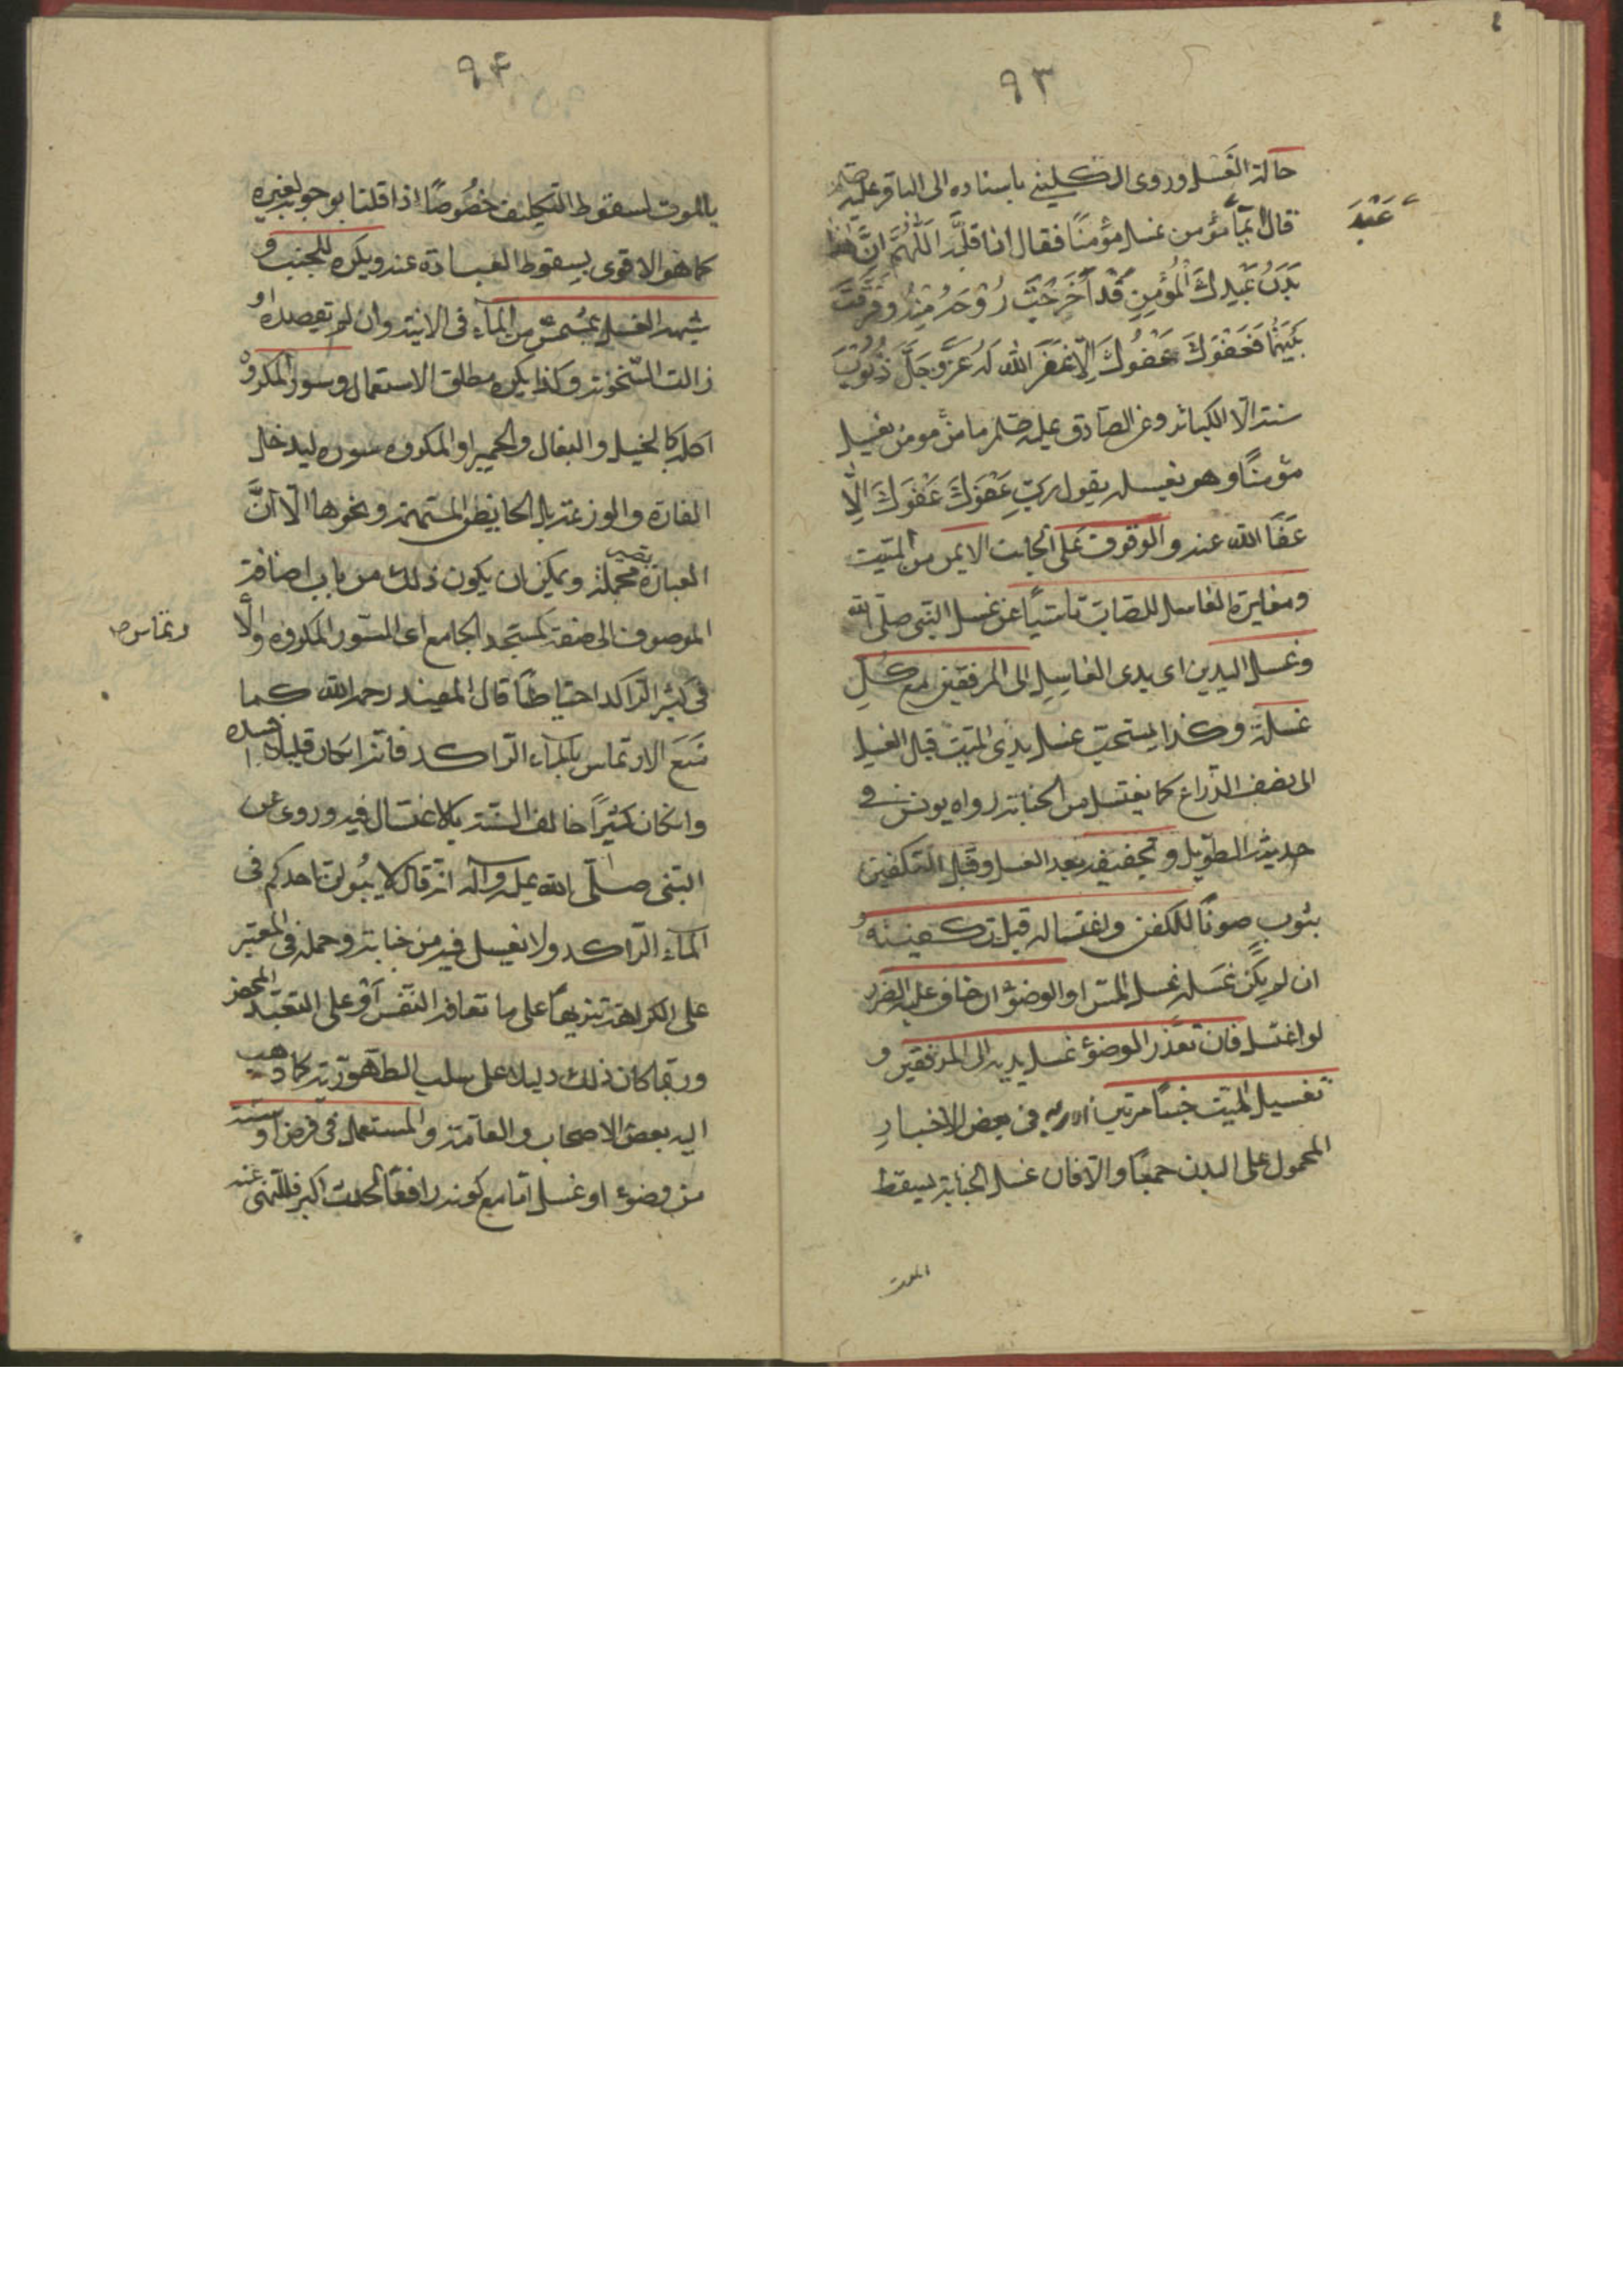 ٩٣
حالة الغسل وروى الكليني باسناده الى الباقر عليه
قال ايّما مؤمن غسل مؤمنًا فقال اذا قلّبه اللّٰهُمَّ انَّ هذا
بَدَنُ عَبْدِكَ الْمُؤْمِنِ قَدْ اَخْرَجْتَ رُوْحَهُ مِنْهُ وفَرَّقْتَ
عَبْدَ
بَيْنَهُمَا فَعَفْوَكَ عَفْوَكَ اِلّا غَفَرَ اللّٰه لَهُ عَزَّ وَجَلَّ ذُنُوْبَ
سنة الّا الكبائر وعن الصّادق عليه ما من مومن يغسل
مؤمنًا وهو يغسله يقول رَبِّ عَفْوَكَ عَفْوَكَ اِلّا
عَفَا اللّٰه عنه والوقوف عَلى الجانب الايمن من الميّت
ومغايرة الغاسل للصابّ تاسّيًا عن غسل النبي صلّى اللّٰه
وغسل اليدين اى يدى الغاسل الى المرفقين مع كلِّ
غسلة وكذا يستحبّ غسل يدى الميّت قبل الغسل
الى نصف الذّراع كما يغتسل من الجنابة رواه يونس في
حديثه الطّويل وتجفيفه بعد الغسل وقبل التكفين
بثوب صونًا للكفن واغتساله قبل تكفينه
ان لم يكن غَسله غسل المسّ او الوضوٕ ان خاف عليه الضرر
لو اغتسل فان تعذّر الوضوٕ غسل يديه الى المرفقين و
تغسيل الميّت جنبًا مرتين في بعض الاخبار
المحمول على البدن جمعًا والّا فان غسل الجنابة يسقط
الموت
٩٤
بالموت لسقوط التكليف خصُوصًا اذا قلنا بوجوبه لغيره
كما هو الاقوى بسقوط العبادة عنه ويكره للجنب و
شبهه الغسل بمُشمّس من المآء فى الانية وان لم تقصده او
زالت السّخونة وكذا يكره مطلق الاستعمال وسور المكروه
اكله كالخيل والبغال والحمير او المكروه سوره ليدخل
الفارة والوزغة بل الحايض المتهمة ونحوها الّا انَّ
العبارة محملة ويمكن ان يكون ذلك من باب اضافة
الموصوف الى صفته كمسجد الجامع اى السّور المكروه
وتماس
فى كثير الراكد احتياطًا قال المفيد رحمه اللّٰه كما
مَنَعَ الارتماس بالمآء الرّاكد فانّه ان كان قليلًا افسده
وان كان كثيرًا خالف السّنة بالاغتسال فيه وروى عن
النبى صلّى اللّٰه عليه وآله انه قال لا يبُولنّ احدكم فى
المآء الرّاكد ولا يغسل فيه من جنابة وحمله فى المعتبر
على الكراهة تنزيهًا على ما تعافه النّفس اَوْ على التعبّد المحض
وربّما كان ذلك دليلا على سلب الطّهوريّة كما ذهب
اليه بعض الاصحاب والعامّة والمستعمل فى فرض او سنّة
من وضوٕ او غسل امّا مع كونه رافعًا لحدث اكبر فللنّهى عنه